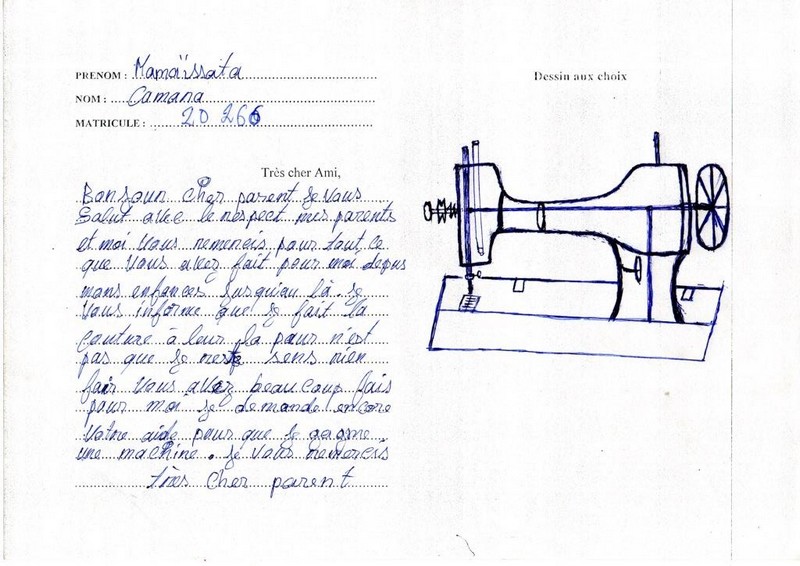 PRENOM : Mamaïssata
NOM : Camara
MATRICULE : 20 266
Dessin aux choix
Très cher Ami,
Bonjour cher parent je vous
Salut avec le respect mes parents
et moi vous remercis pour tout ce
que vous avez fait pour moi depus
mons enfances jusqu'au là. Je
vous informe que je fait la
couture à leur là pour n'est
pas que je reste sens rien
fair vous avez beaucoup fais
pour moi je demande encore
votre aide pour que je gagme
une machine. Je vous remercis
très cher parent